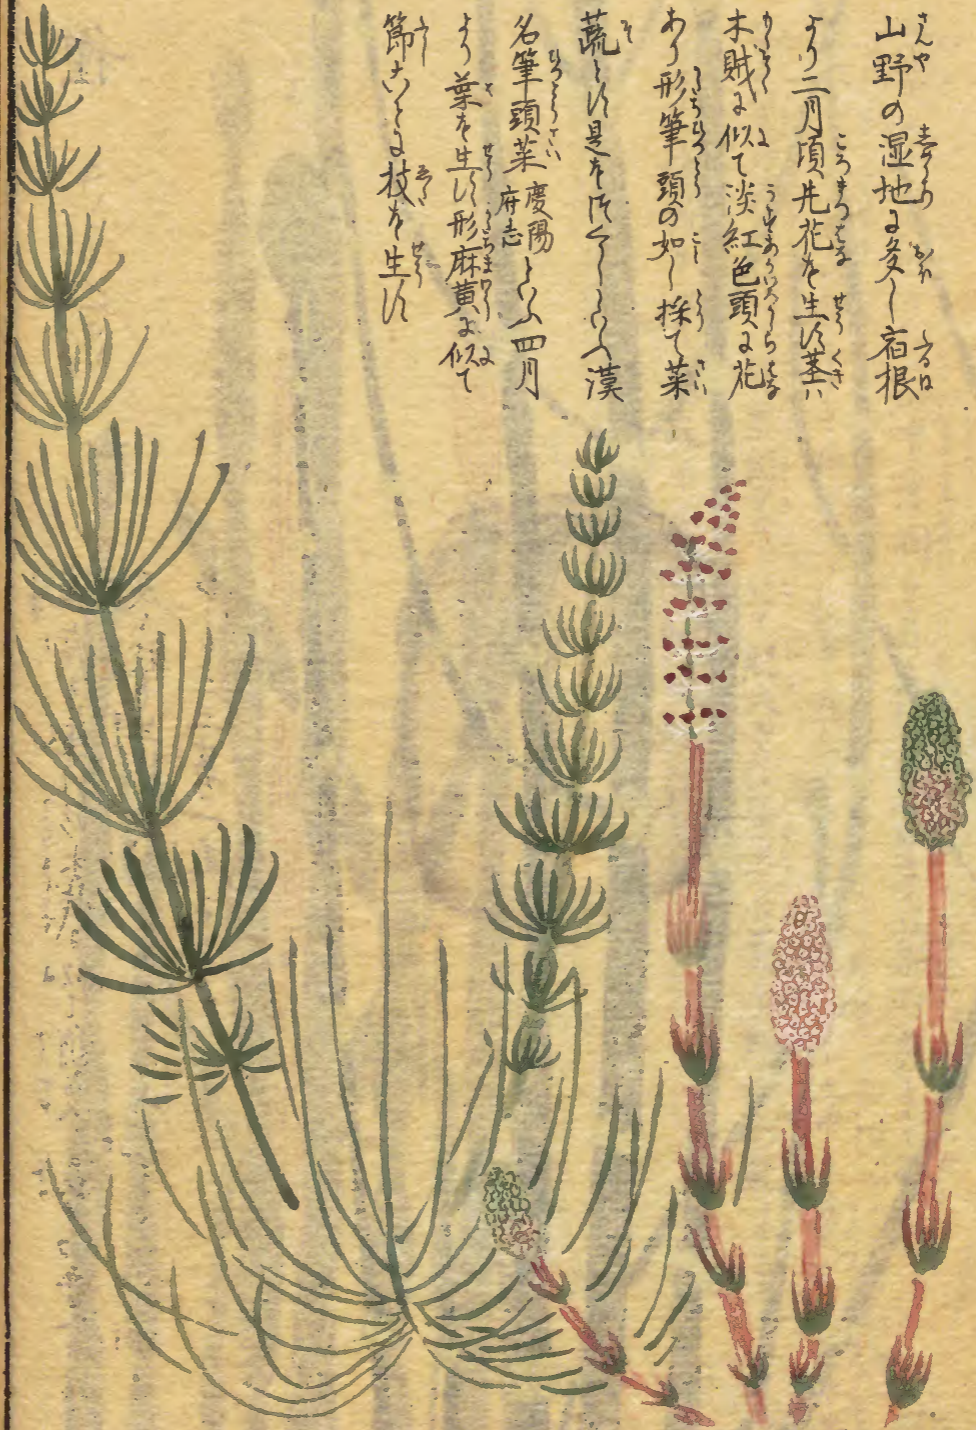 山野の湿地に多し宿根
より二月頃先花を生ず茎ハ
木賊に似て淡紅色頭に花
あり形筆頭の如し採て菜
蔬とす是をつくしといふ漢
名筆頭菜慶陽府志といふ四月
より葉を生じ形麻黄に似て
節ごとに枝を生ず